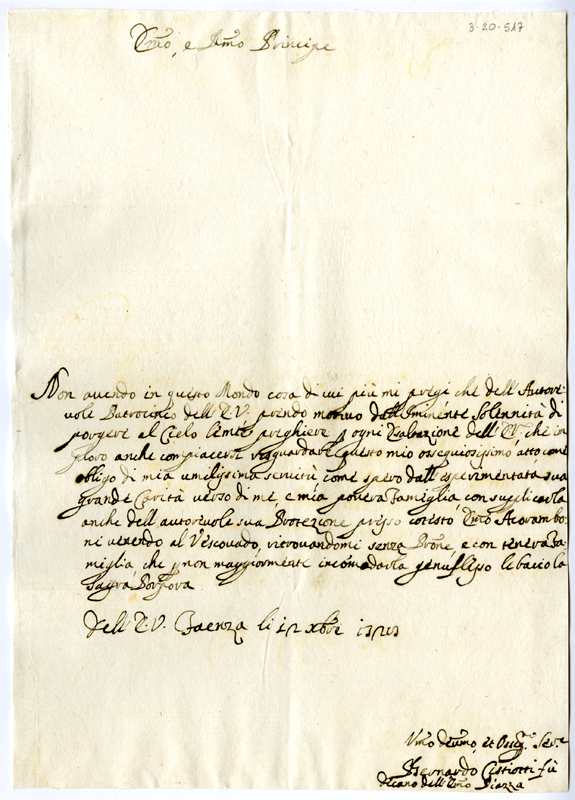 3-20-517
Emo, e Rmo Principe
Non avendo in questo Mondo cosa di cui più mi pregi che dell'Autore:
vole Patrocinio dell'E.V. prendo motivo dall'Iminente Solennità di
porgere al Cielo preghiere ogni Esaltazione dell'E.V. che in
ploro anche compiacersi risguardare questo mio ossequiosissimo atto come
obligo di mia umilissima servitù come spero dall'esperimentata sua
grande Carità verso di me, e mia povera Famiglia con suplicarla
anche dell'autorevole sua Protezione presso cotesto Emo Acorambo:
ni venendo al Vescovado, ritrovandomi senza Prone, e con tenera Fa:
miglia, che non maggiormente incomodarla genuflesso le bacio la
Sagra Porpora
Dell'E.V. Faenza li 12 xbre
Umo Devmo, et Serre
Bernardo fù
Decano dell'Emo Piazza